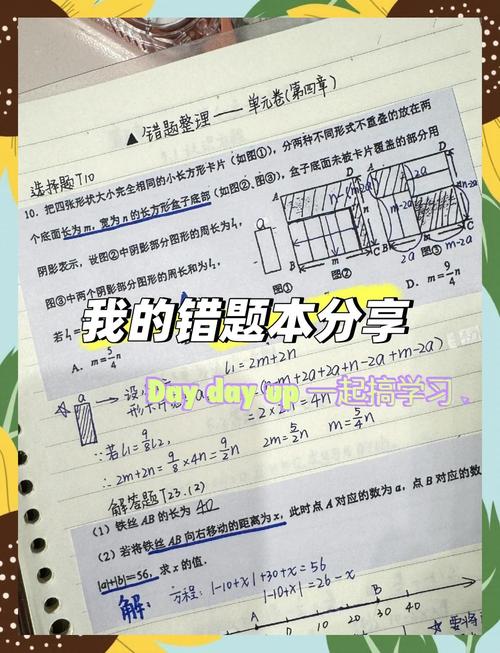 ▲ 错题整理 —— 单元卷(第四章)
选择题T10
10. 把四张形状大小完全相同的小长方形卡片（如图①），分两种不同形式不重叠的放在两
个底面长为 m，宽为 n 的长方形盒子底部（如图②、图③），盒子底面未被卡片覆盖的部分用
阴影表示，设图②中阴影部分图形的周长为 l₁，
图③中两个阴影部分图形的周长和为 l₂，
若 l₁=
图① 图② 图③
A. m=5/4n
D. m=9/4n
我的错题本分享
Day day up 一起搞学习.
l₁=2m+2n
(m+2a+2a+n-2a+m-2a)
=2×2n=4n
∵若l₁=9/8l₂,
∴2m+2n=9/8×4n=9/2n 2m=5/2n m=5/4n
解答题T23.(2)
（1）铁丝 AB 的长为 40
（2）若将铁丝 AB 向右移动的距离为 x，此时点 A 对应的数为 a，点 B 对应的数
|a|+|b|=56，求 x 的值.
解: 方程: |-10+x|+30+x=56
|-10+x|=26-x
A B
0 10 20 30 40